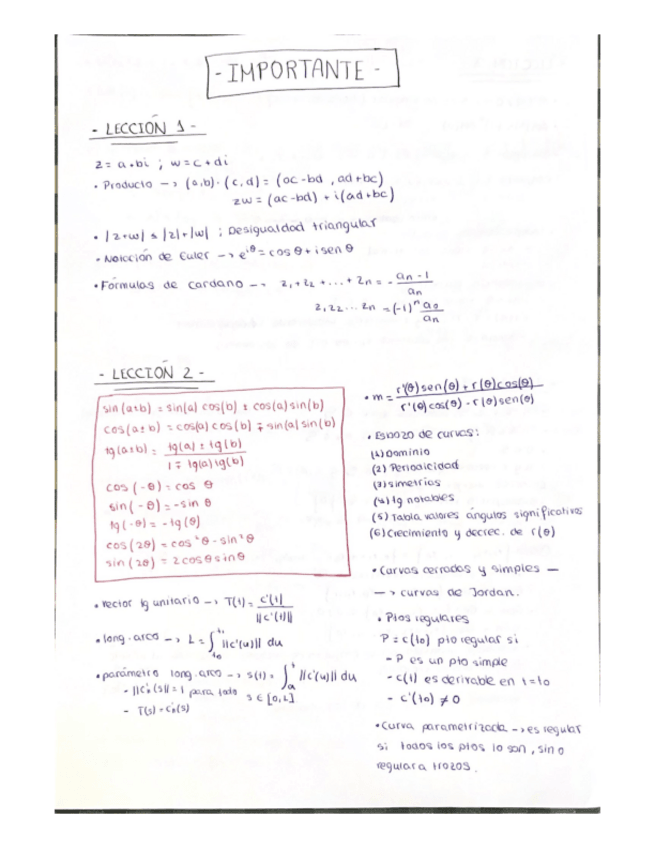 - IMPORTANTE -
- LECCIÓN 1 -
z = a+bi ; w = c+di
• Producto -> (a,b)·(c,d) = (ac-bd, ad+bc)
zw = (ac-bd) + i(ad+bc)
• |z+w| ≤ |z|+|w| ; Desigualdad triangular
- Notación de Euler -> e^iθ = cos θ + i sen θ
• Fórmulas de cardano -> z₁+z₂+...+zn = - an-1 / an
z₁z₂...zn = (-1)^n a₀ / an
- LECCIÓN 2 -
sin(a±b) = sin(a) cos(b) ± cos(a) sin(b)
cos(a±b) = cos(a) cos(b) ∓ sin(a) sin(b)
tg(a±b) = tg(a) ± tg(b) / 1 ∓ tg(a) tg(b)
cos(-θ) = cos θ
sin(-θ) = -sin θ
tg(-θ) = -tg(θ)
cos(2θ) = cos²θ - sin²θ
sin(2θ) = 2cosθ sinθ
• vector tg unitario -> T(t) = c'(t) / ||c'(t)||
• long. arco -> L = ∫t₀ t₁ ||c'(u)|| du
• parámetro long. arco -> s(t) = ∫a t ||c'(u)|| du
- ||c'(s)|| = 1 para todo s ∈ [0,L]
- T(s) = c'(s)
• m = r'(θ) sen(θ) + r(θ) cos(θ) / r'(θ) cos(θ) - r(θ) sen(θ)
• Esbozo de curvas:
(1) Dominio
(2) Periodicidad
(3) simetrías
(4) tg notables
(5) Tabla valores ángulos significativos
(6) Crecimiento y decrec. de r(θ)
• Curvas cerradas y simples —
—> curvas de Jordan.
• Ptos regulares
P = c(t₀) pto regular si
- P es un pto simple
- c(t) es derivable en t=t₀
- c'(t₀) ≠ 0
• Curva parametrizada -> es regular
si todos los ptos lo son, sino
regular a trozos.